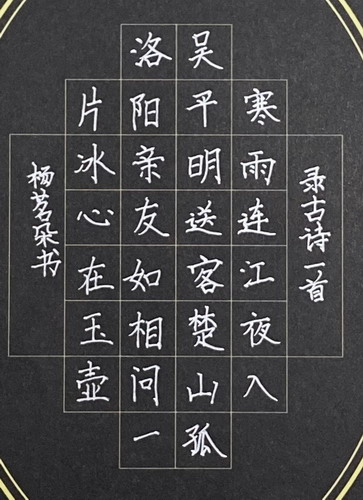 录古诗一首
寒雨连江夜入
吴平明送客楚山孤
洛阳亲友如相问一
片冰心在玉壶
杨茗朵书